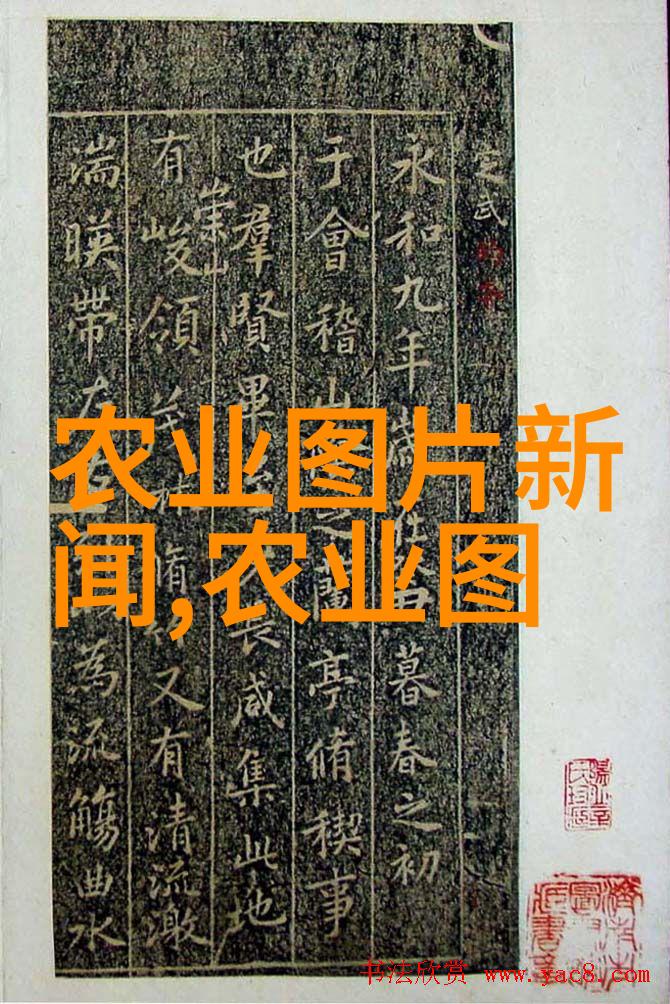 定武
永和九年歲在癸丑暮春之初
于會稽山之蘭亭脩稧事
也羣賢畢至長咸集此地
有崇山峻領茂林脩又有清流激
湍暎帶左為流觴曲水
农业图片新
闻,农业图
书法欣赏 www.yac8.com